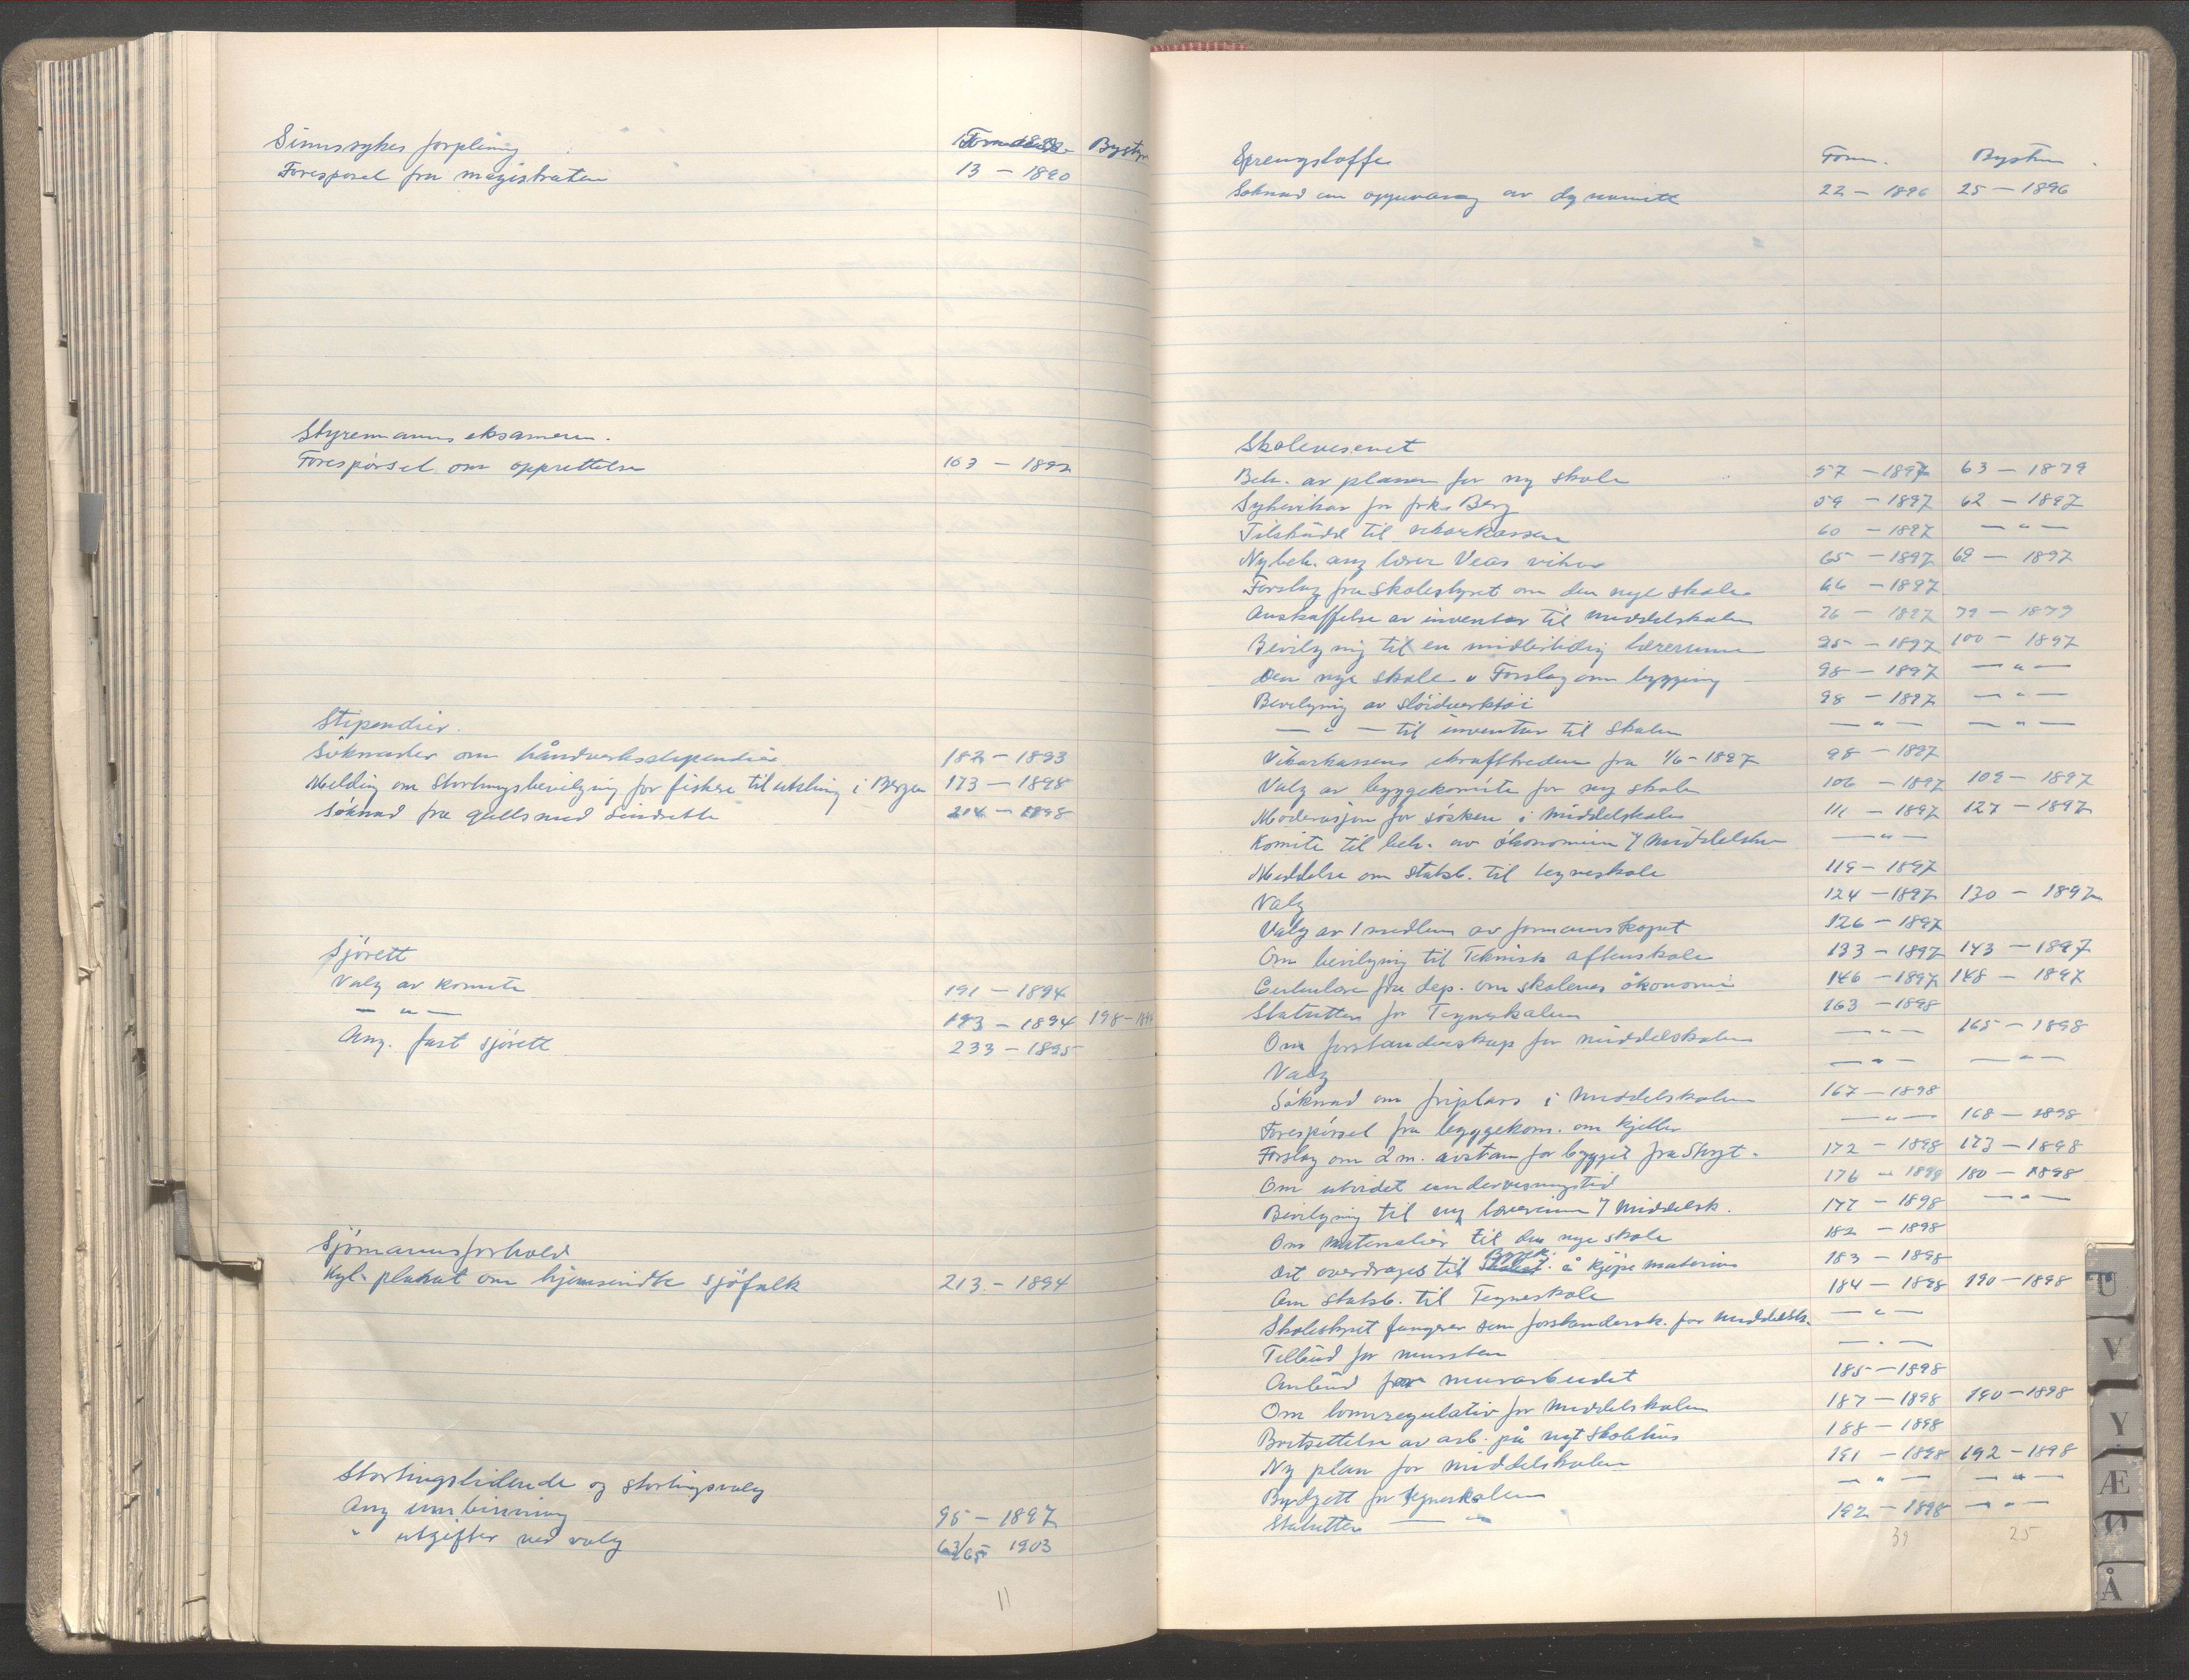 Sinnssykes forpleining Bystyr
Forespørsel fra magistraten 13 — 1890
Styremannseksamen.
Forespørsel om opprettelse 163 — 1892
Stipendier.
Søknader om håndverksstipendier 182 — 1893
Melding om Stortingsbevilgning for fiskere til utstilling i Bergen 173 — 1898
Søknad fra gullsmed 214 — 1898
Sjørett
Valg av komite 191 — 1894
— " — 193 — 1894 198 — 1894
Ang. fast sjørett 233 — 1895
Sjømannsforhold
Kgl. plakat om hjemsendte sjøfolk 213 — 1894
Stortingstidende og stortingsvalg
Ang innbinning 95 — 1897
" utgifter ved valg 63/65 1903
11
Sprengstoffer Form. Bystyre
Søknad om oppevaring av dynamitt 22 — 1896 25 — 1896
Skolevesenet
Beh. av planen for ny skole 57 — 1897 63 — 1879
Sykevikar for frk. Berg 59 — 1897 62 — 1897
Tilskudd til vikarkassen 60 — 1897 — " —
Ny beh. ang lærer Veas vikar 65 — 1897 69 — 1897
Forslag fra Skolestyret om den nye skole 66 — 1897
Anskaffelse av inventar til middelskolen 76 — 1897 79 — 1879
Bevilgning til en midlertidig lærerinne 95 — 1897 100 — 1897
Den nye skole. Forslag om bygging 98 — 1897 — " —
Bevilgning av sløidverktøi 98 — 1897 — " —
— " — til inventar til skolen — " — — " —
Vikarkassens ikrafttreden fra 1/6 - 1897 98 — 1897
Valg av byggekomite for ny skole 106 — 1897 109 — 1897
Moderasjon for søsken i Middelskolen 111 — 1897 127 — 1897
Komite til beh. av økonomien v/ Middelskolen — " —
Meddelse om statsb. til tegneskole 119 — 1897
Valg 124 — 1897 130 — 1897
Valg av 1 medlem av formannskapet 126 — 1897
Om bevilgning til Teknisk aftenskole 133 — 1897 143 — 1897
Cirkulære fra dep. om skolenes økonomi 146 — 1897 148 — 1897
Statutter for Tegneskolen 163 — 1898
Om forstanderskap for middelskolen — " — 165 — 1898
Valg — " — — " —
Søknad om friplass i Middelskolen 167 — 1898
Forespørsel fra byggekom. om kjeller — " — 168 — 1898
Forslag om 2 m. avstan for bygget fra Skryt. 172 — 1898 173 — 1898
Om utvidet undervisningstid 176 — 1898 180 — 1898
Bevilgning til ny lærerinne v/ Middelsk. 177 — 1898 — " —
Om Materialier til den nye skole 182 — 1898
Det overdrages til å kjøpe materialer 183 — 1898
Om statsb. til Tegneskole 184 — 1898 190 — 1898
Skolestyret fungerer som forstandersk. for middelsk. — " —
Tilbud for mursten — " —
Anbud for murarbeidet 185 — 1898
Om lønnsregulativ for Middelskolen 187 — 1898 190 — 1898
Bortsettelse av arb. på nyt Skolehus 188 — 1898
Ny plan for middelskolen 191 — 1898 192 — 1898
Budgett for tegneskolen — " — — " —
Statutter — " 192 — 1898 — " —
39 25
U
V
Y
Æ
Ø
Å